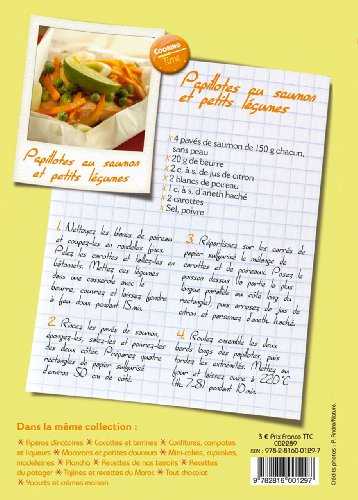 Cooking
Time
Papillotes au saumon
et petits légumes
Papillotes au saumon
et petits légumes
x 4 pavés de saumon de 150 g chacun,
sans peau
x 20 g de beurre
x 2 c. à s. de jus de citron
x 2 blancs de poireau
x 1 c. à s. d'aneth haché
x 2 carottes
x Sel, poivre
1. Nettoyez les blancs de poireau
et coupez-les en rondelles fines.
Pelez les carottes et taillez-les en
bâtonnets. Mettez ces légumes
dans une casserole avec le
beurre, couvrez et laissez fondre
à feu doux pendant 15 min.
2. Rincez les pavés de saumon,
épongez-les, salez-les et poivrez-les
des deux côtés. Préparez quatre
rectangles de papier sulfurisé
d'environ 30 cm de côté.
3. Répartissez sur les carrés de
papier sulfurisé le mélange de
carottes et de poireaux. Posez le
poisson dessus (la partie la plus
longue parallèle au côté long du
rectangle) puis arrosez de jus de
citron et parsemez d'aneth haché.
4. Roulez ensemble les deux
bords longs des papillotes, puis
tordez les extrémités. Mettez au
four et laissez cuire à 220°C
(th. 7-8) pendant 10 min.
Dans la même collection :
* Apéros dînatoires * Cocottes et terrines * Confitures, compotes
et liqueurs * Macarons et petites douceurs * Mini-cakes, cupcakes,
madeleines * Plancha * Recettes de nos terroirs * Recettes
du potager * Tajines et recettes du Maroc * Tout chocolat
* Yaourts et crèmes maison
3 € Prix France TTC
CO2289
ISBN : 978-2-8160-0129-7
9 782816 001297
Crédits photos : P. André/Nature.